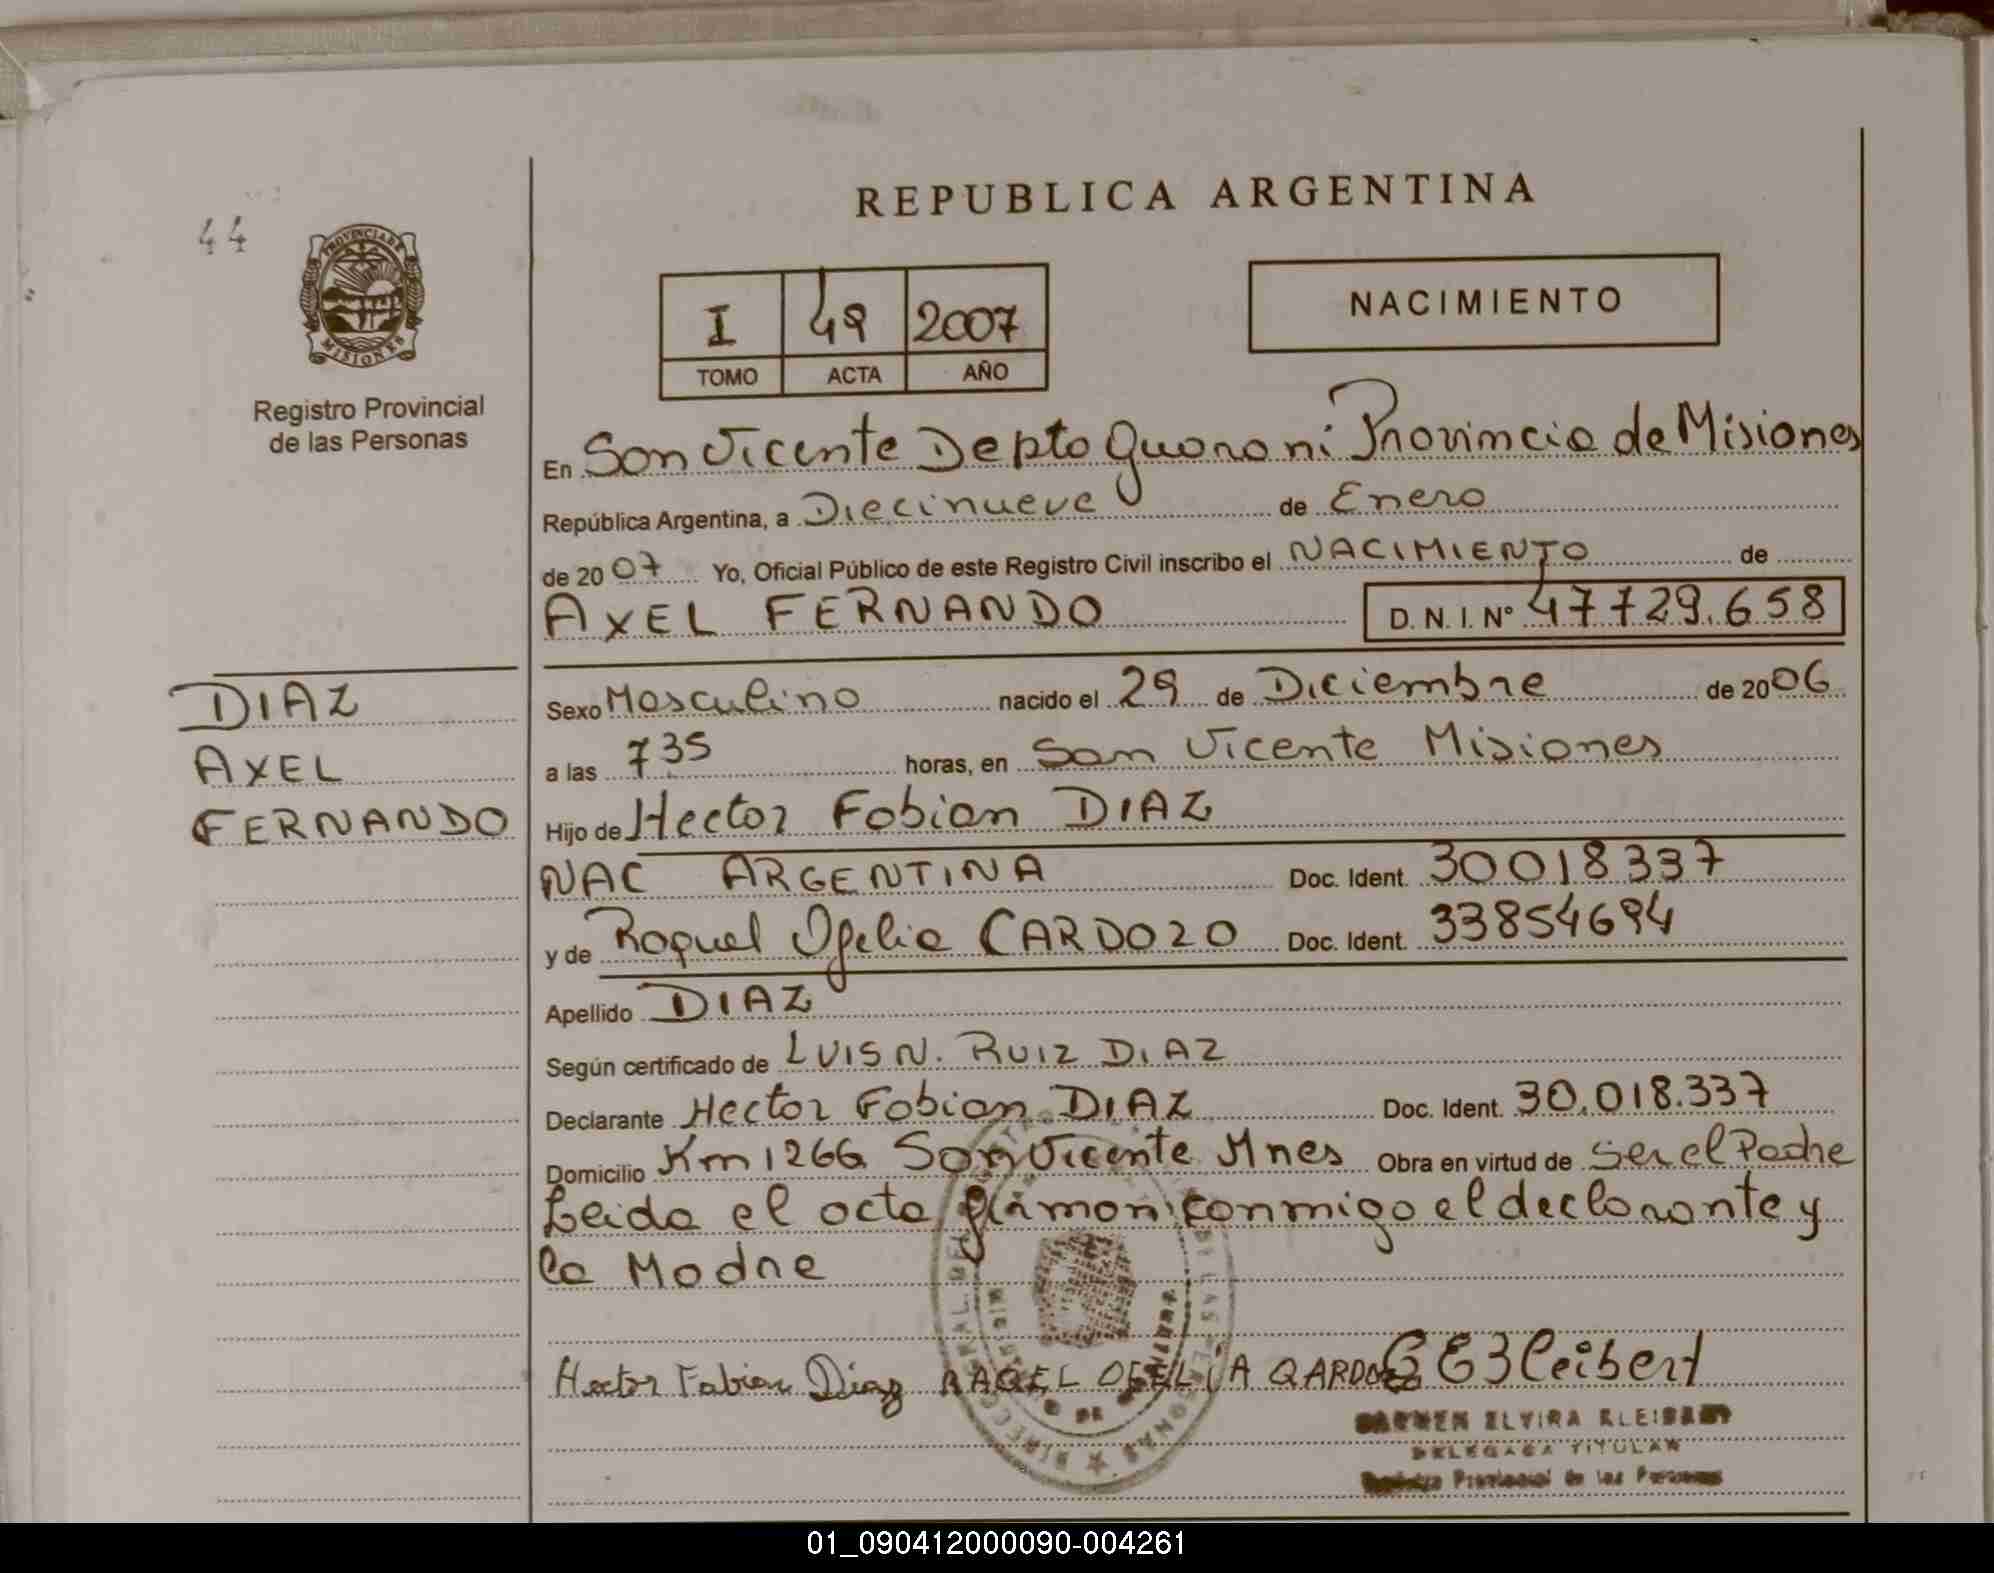 44
PROVINCIA DE
MISIONES
Registro Provincial
de las Personas
REPUBLICA ARGENTINA
I 49 2007
TOMO ACTA AÑO
NACIMIENTO
En San Vicente Depto Guarani Provincia de Misiones
República Argentina, a Diecinueve de Enero
de 2007 Yo, Oficial Público de este Registro Civil inscribo el NACIMIENTO de
AXEL FERNANDO D. N. I. Nº 47729.658
DIAZ
AXEL
FERNANDO
Sexo Masculino nacido el 29 de Diciembre de 2006
a las 735 horas, en San Vicente Misiones
Hijo de Hector Fabian DIAZ
NAC ARGENTINA Doc. Ident. 30018337
y de Raquel Ofelia CARDOZO Doc. Ident. 33854694
Apellido DIAZ
Según certificado de LUIS N. RUIZ DIAZ
Declarante Hector Fabian DIAZ Doc. Ident. 30.018.337
Domicilio Km 1266 San Vicente Mnes Obra en virtud de Ser el Padre
Leida el acta firman conmigo el declarante y
la Madre
Hector Fabian Diaz RAQEL OFELIA QARDOZO CE Kleibert
CARMEN ELVIRA KLEIBERT
DELEGADA TITULAR
Registro Provincial de las Personas
01_090412000090-004261